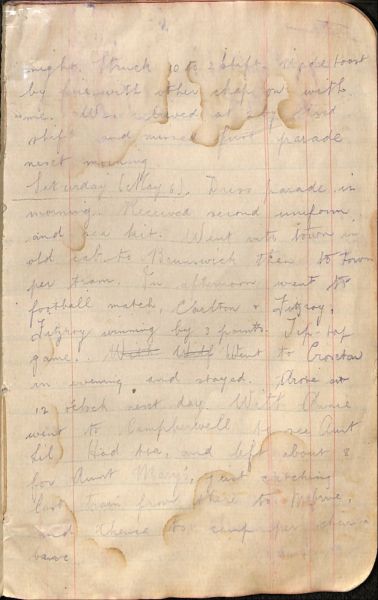 night. Struck 10 to 2 shift. Made toast
by fire with other chap on with
me. Was relieved at end
shift and missed first parade
next morning.
Saturday (May 6). Dress parade in
morning. Received second uniform
and sea kit. Went into town in
old cab to Brunswick then to town
per tram. In afternoon went to
football match, Carlton v Fitzroy,
Fitzroy winning by 3 points. Tip-top
game. Went to Croxton
in evening and stayed.
12 o'clock next day. With
went to Camperwell to see Aunt
Lil. Had tea, and left about 8
for Aunt Mary's, just catching
last train from there to Melb,
and thence to camp per